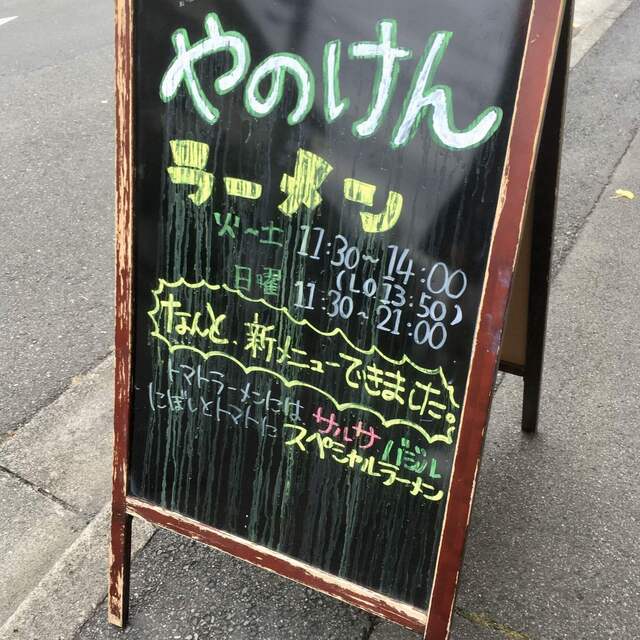 やのけん
ラーメン
火～土 11:30～14:00
(LO 13:50)
日曜 11:30～21:00
なんと、新メニューできました。
トマトラーメンには サルサ バジル
にぼしとトマトに スペシャルラーメン